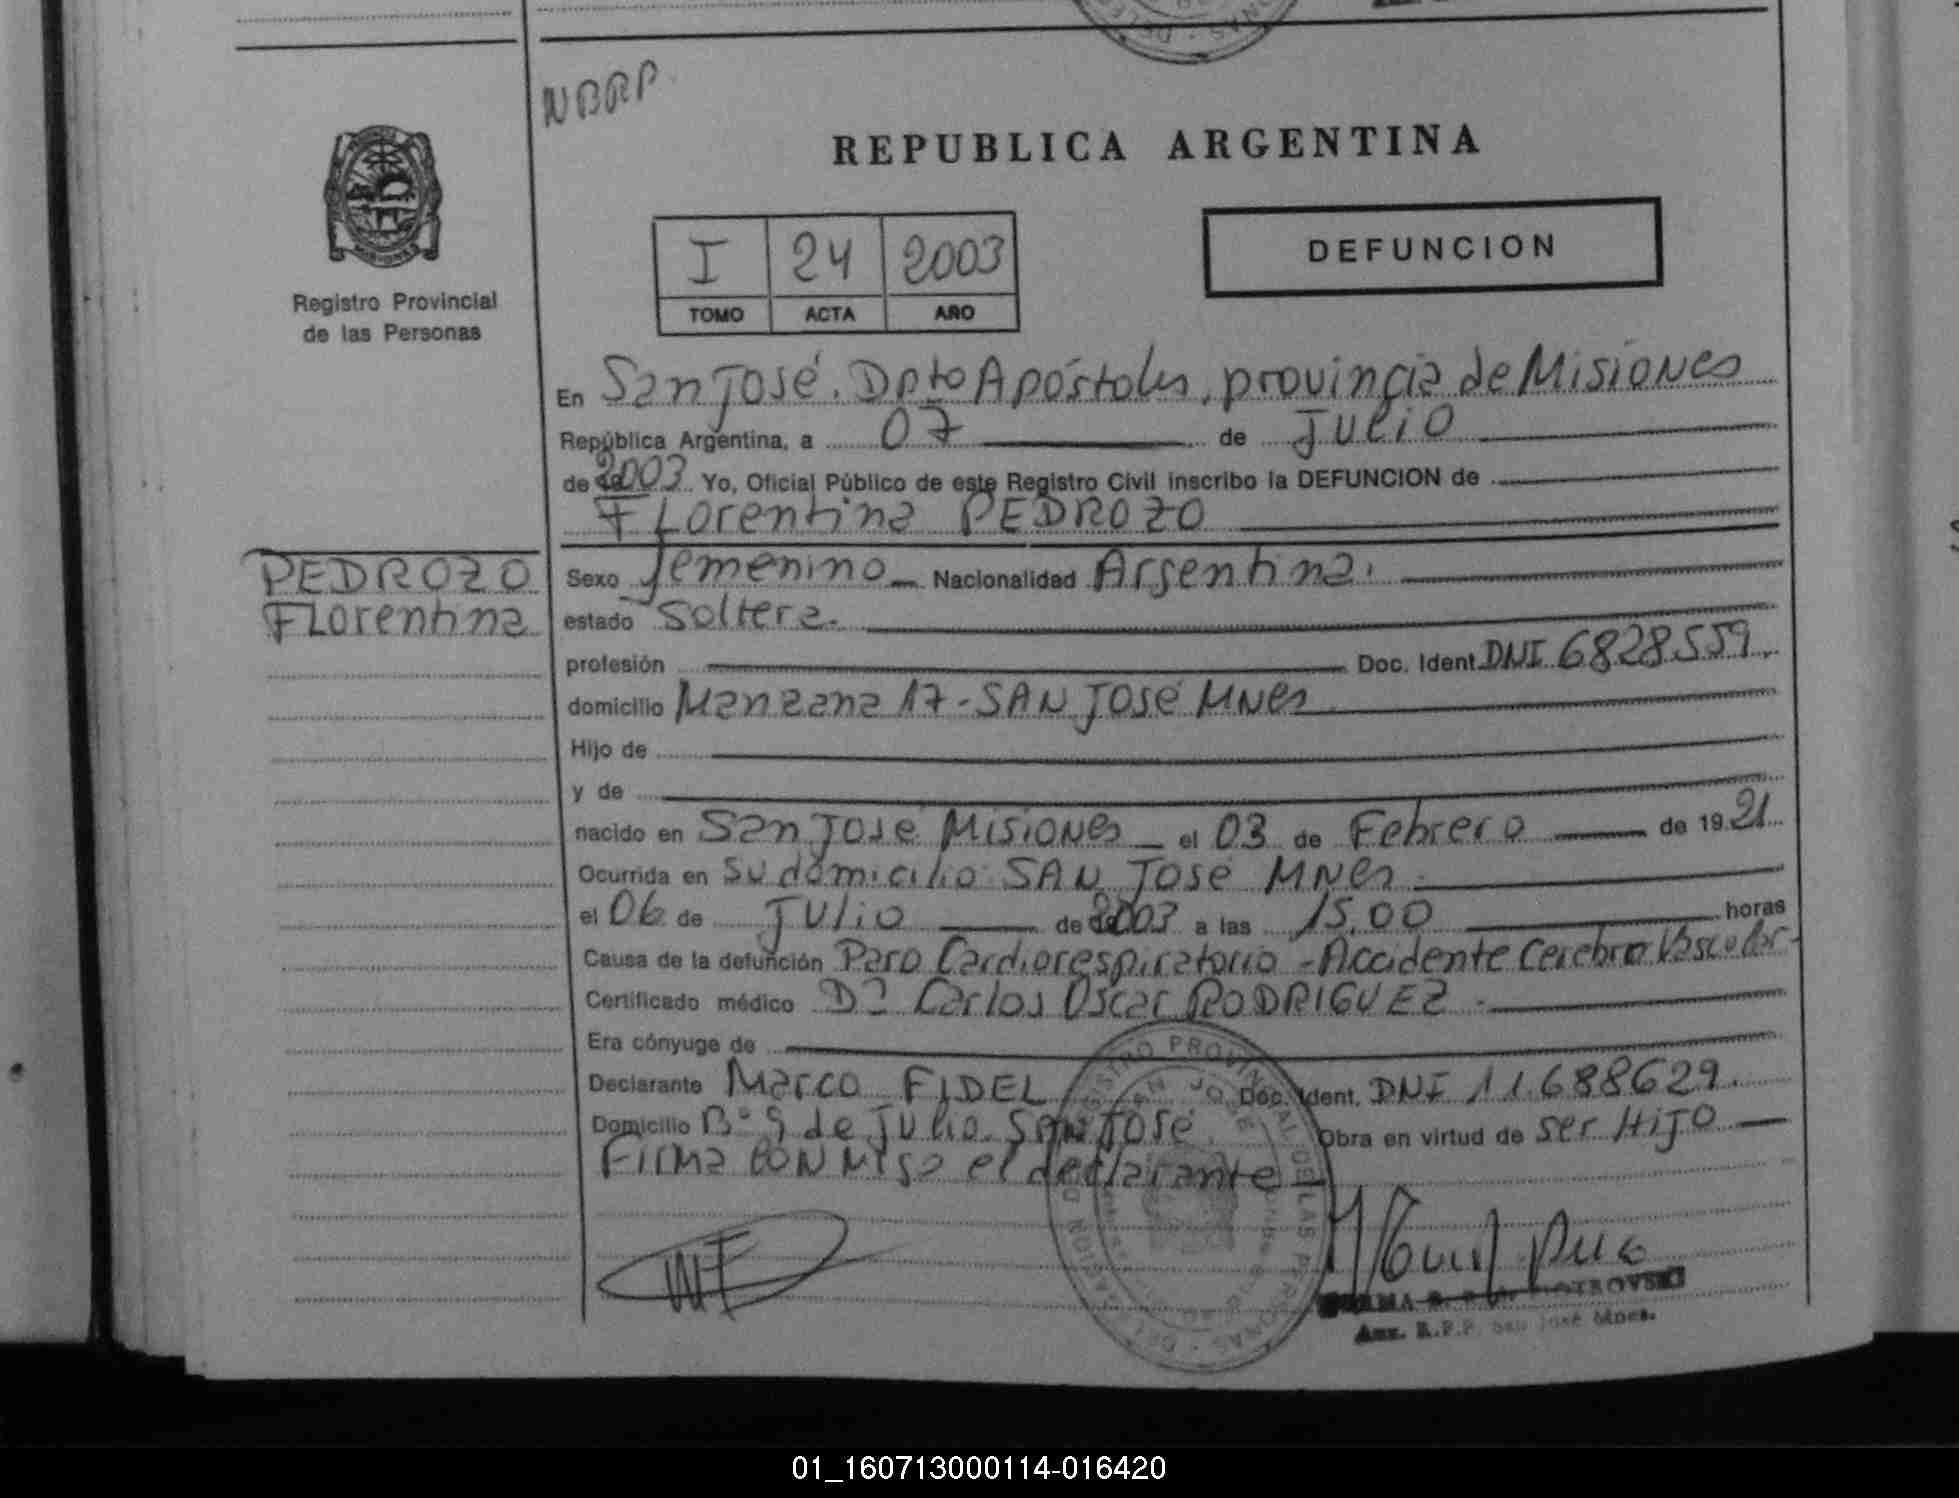 NBRP.
REPUBLICA ARGENTINA
MISIONES
Registro Provincial
de las Personas
I 24 2003
TOMO ACTA AÑO
DEFUNCION
En San José. Dpto Apóstoles, provincia de Misiones
República Argentina, a 07 de Julio
de 2003 Yo, Oficial Público de este Registro Civil inscribo la DEFUNCION de
Florentina PEDROZO
PEDROZO
Florentina
Sexo femenino Nacionalidad Argentina.
estado Soltera.
profesión Doc. Ident. DNI 6828559.
domicilio Manzana 17 - SAN José Mnes.
Hijo de
y de
nacido en San José Misiones el 03 de Febrero de 1921
Ocurrida en su domicilio SAN José Mnes.
el 06 de Julio de 2003 a las 15.00 horas
Causa de la defunción Paro Cardiorespiratorio - Accidente Cerebro Vascular-
Certificado médico Dr Carlos Oscar RODRIGUEZ.
Era cónyuge de
Declarante Marco FIDEL Doc. Ident. DNI 11688629.
Domicilio B° 9 de Julio. San José. Obra en virtud de ser Hijo
Firma conmigo el declarante
MF
REGISTRO PROVINCIAL DE LAS PERSONAS
SAN JOSE
Aux. R.P.P. San José Mnes.
01_160713000114-016420